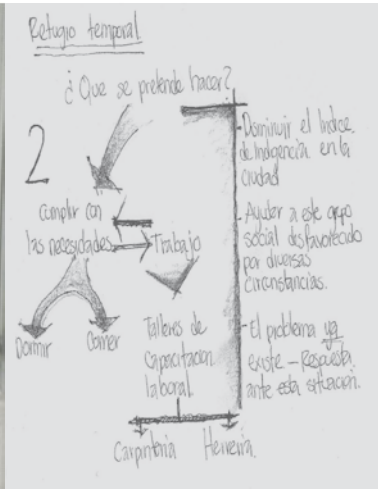 Refugio temporal
¿Que se pretende hacer?
2
Cumplir con
las necesidades
Trabajo
Dormir
Comer
Talleres de
Capacitacion
laboral.
Carpinteria
Herreria.
-Disminuir el Indice
de Indigencia en la
ciudad
-Ayudar a este grupo
social desfavorecido
por diversas
circunstancias.
-El problema ya
existe - Respuesta
ante esta situación.